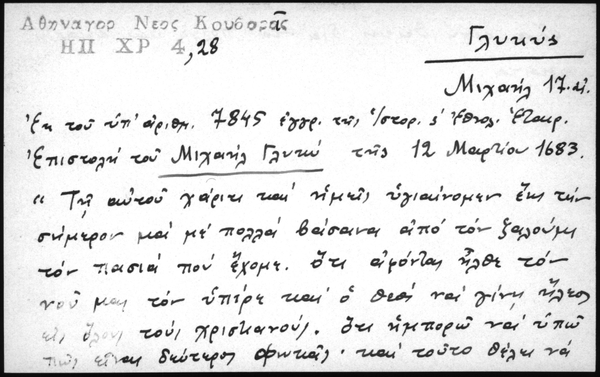 Ἀθηναγορ Νεος Κουβαρᾶς
ΗΠ ΧΡ 4,28
Γλυκύς
Μιχαήλ 17. αἰ.
Ἐκ τοῦ ὑπ' ἀριθμ. 7845 ἐγγρ. τῆς Ἱστορ. & Ἐθνολ. Ἑταιρ.
Ἐπιστολή τοῦ Μιχαήλ Γλυκύ τῆς 12 Μαρτίου 1683.
" Τῇ αὐτοῦ χάριτι καί ἡμεῖς ὑγιαίνομεν ἕως τήν
σήμερον μά μέ πολλά βάσανα ἀπό τόν
τόν πασιά πού ἔχομε. ὅτι ἀφόντας ἦλθε τόν
νοῦ μας τόν ὑπῆρε καί ὁ θεός νά γίνῃ ἥλεος
εἰς ὅλους τούς χριστιανούς. ὅτι ἠμπορῶ νά ὑπῶ
πώς εἶναι δεύτερος φωκᾶς. καί τοῦτο θέλει νά